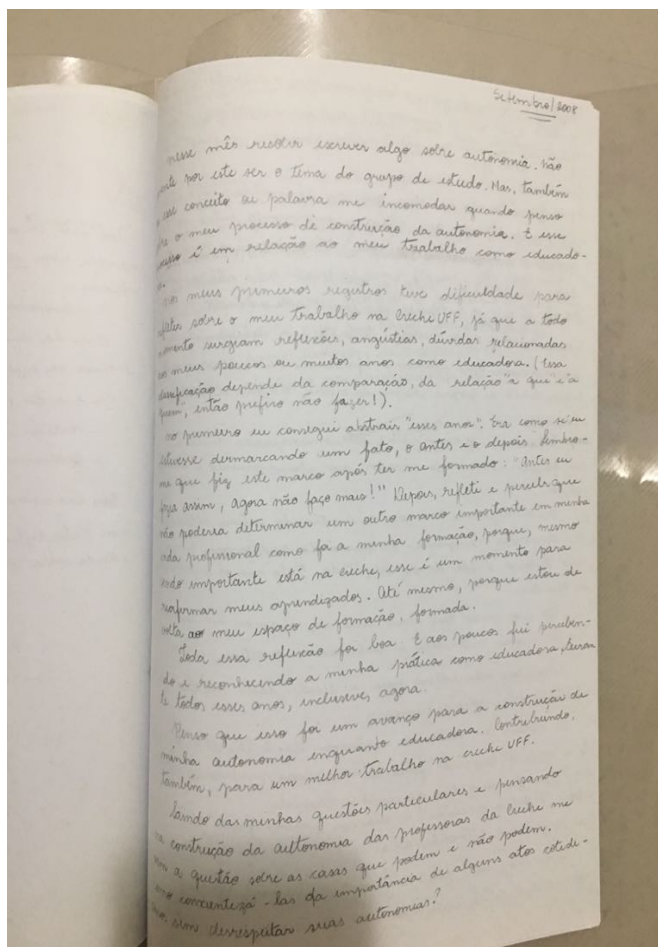 Setembro/2008
nesse mês resolvi escrever algo sobre autonomia. Não
por este ser o tema do grupo de estudo. Mas, também
esse conceito ou palavra me incomodar quando penso
o meu processo de construção da autonomia. E esse
é em relação ao meu trabalho como educado-
nos meus primeiros registros tive dificuldade para
sobre o meu trabalho na creche UFF, já que a todo
surgiam reflexões, angústias, dúvidas relacionadas
meus poucos ou muitos anos como educadora. (Essa
depende da comparação, da relação "a que" e "a
quem", então prefiro não fazer!).
no primeiro eu consegui abstrair "esses anos". Era como se eu
estivesse dermarcando um fato, o antes e o depois. Lembro-
me que fiz este marco após ter me formado: "Antes eu
fazia assim, agora não faço mais!" Depois, refleti e percebi que
não poderia determinar um outro marco importante em minha
vida profissional como foi a minha formação, porque, mesmo
sendo importante está na creche, esse é um momento para
reafirmar meus aprendizados. Até mesmo, porque estou de
volta ao meu espaço de formação, formada.
Toda essa reflexão foi boa. E aos poucos fui perceben-
do e reconhecendo a minha prática como educadora,
te todos esses anos, inclusive, agora.
Penso que isso foi um avanço para a construção de
minha autonomia enquanto educadora. Contribuindo,
também, para um melhor trabalho na creche UFF.
Saindo das minhas questões particulares e pensando
na construção da autonomia das professoras da creche me
a questão sobre as coisas que podem e não podem.
como conscientizá-las da importância de alguns atos cotidi-
sem desrespeitar suas autonomias?